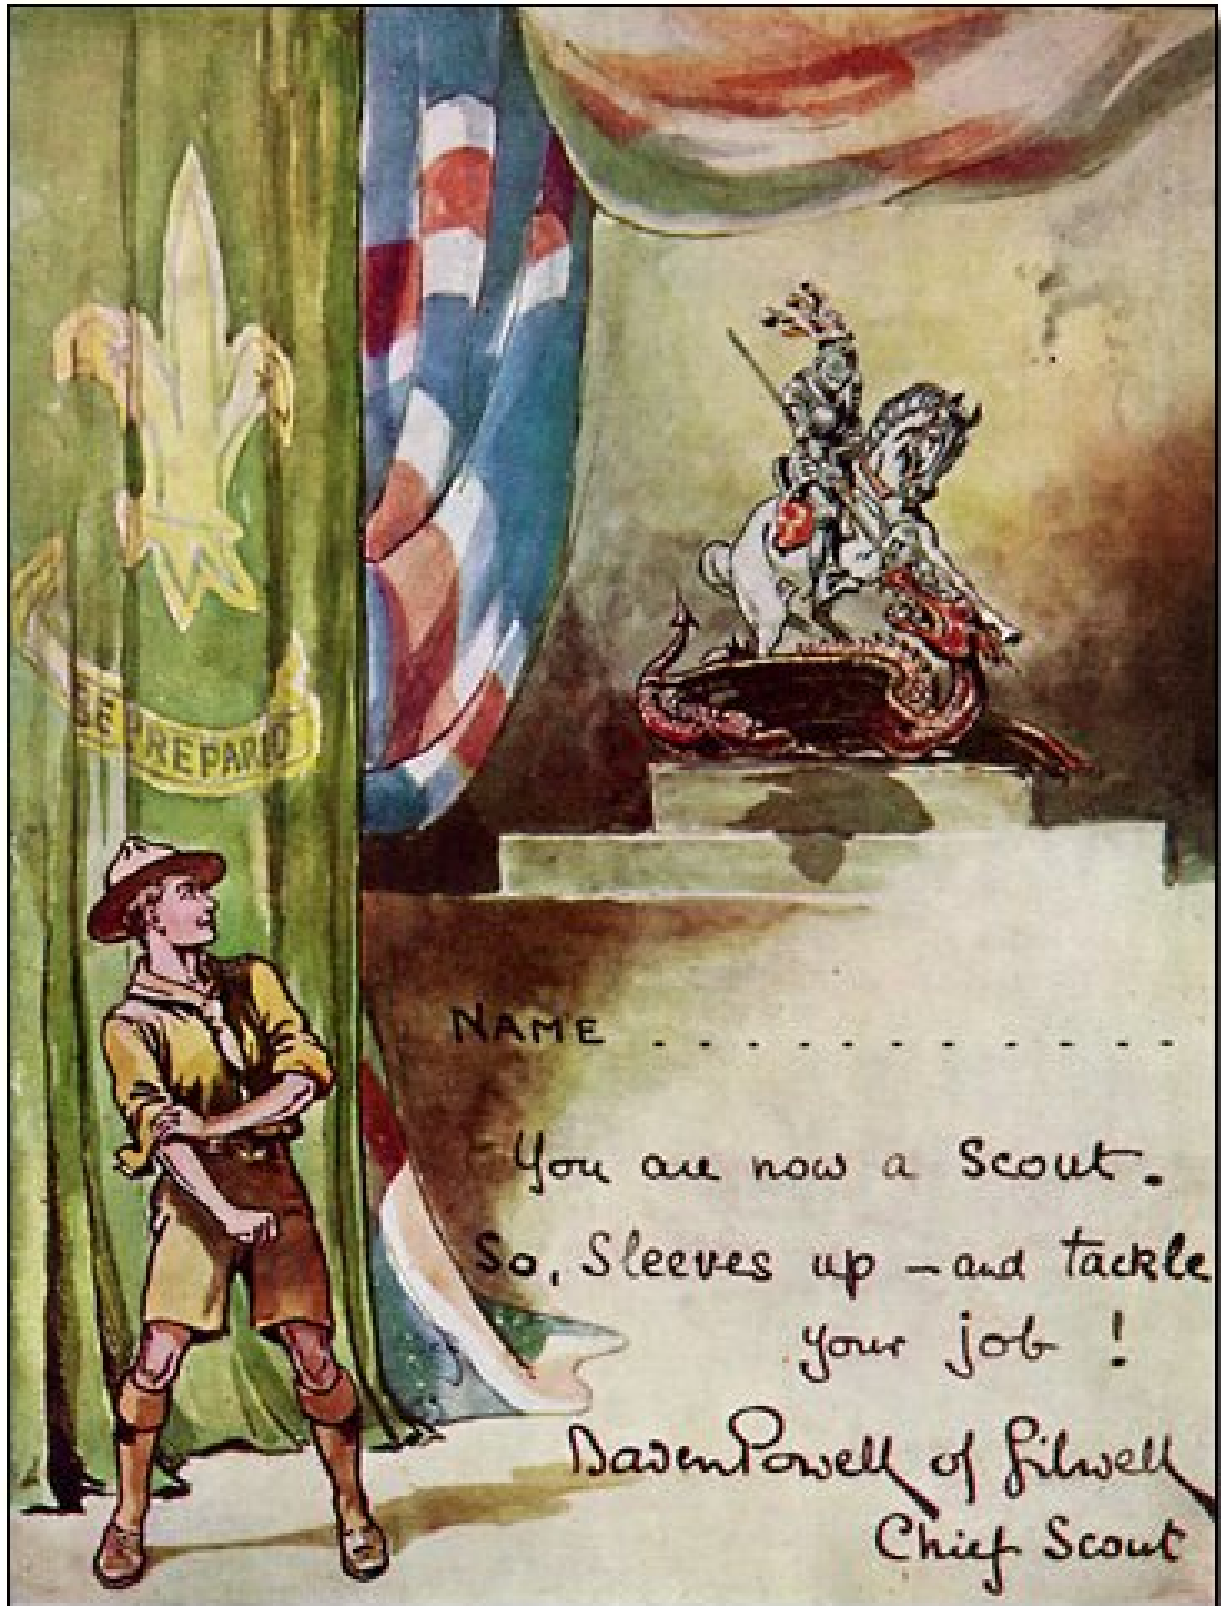 BE PREPARED
NAME . . . . . . . . . . . .
You are now a Scout.
So, Sleeves up – and tackle
your job !
Baden Powell of Gilwell
Chief Scout